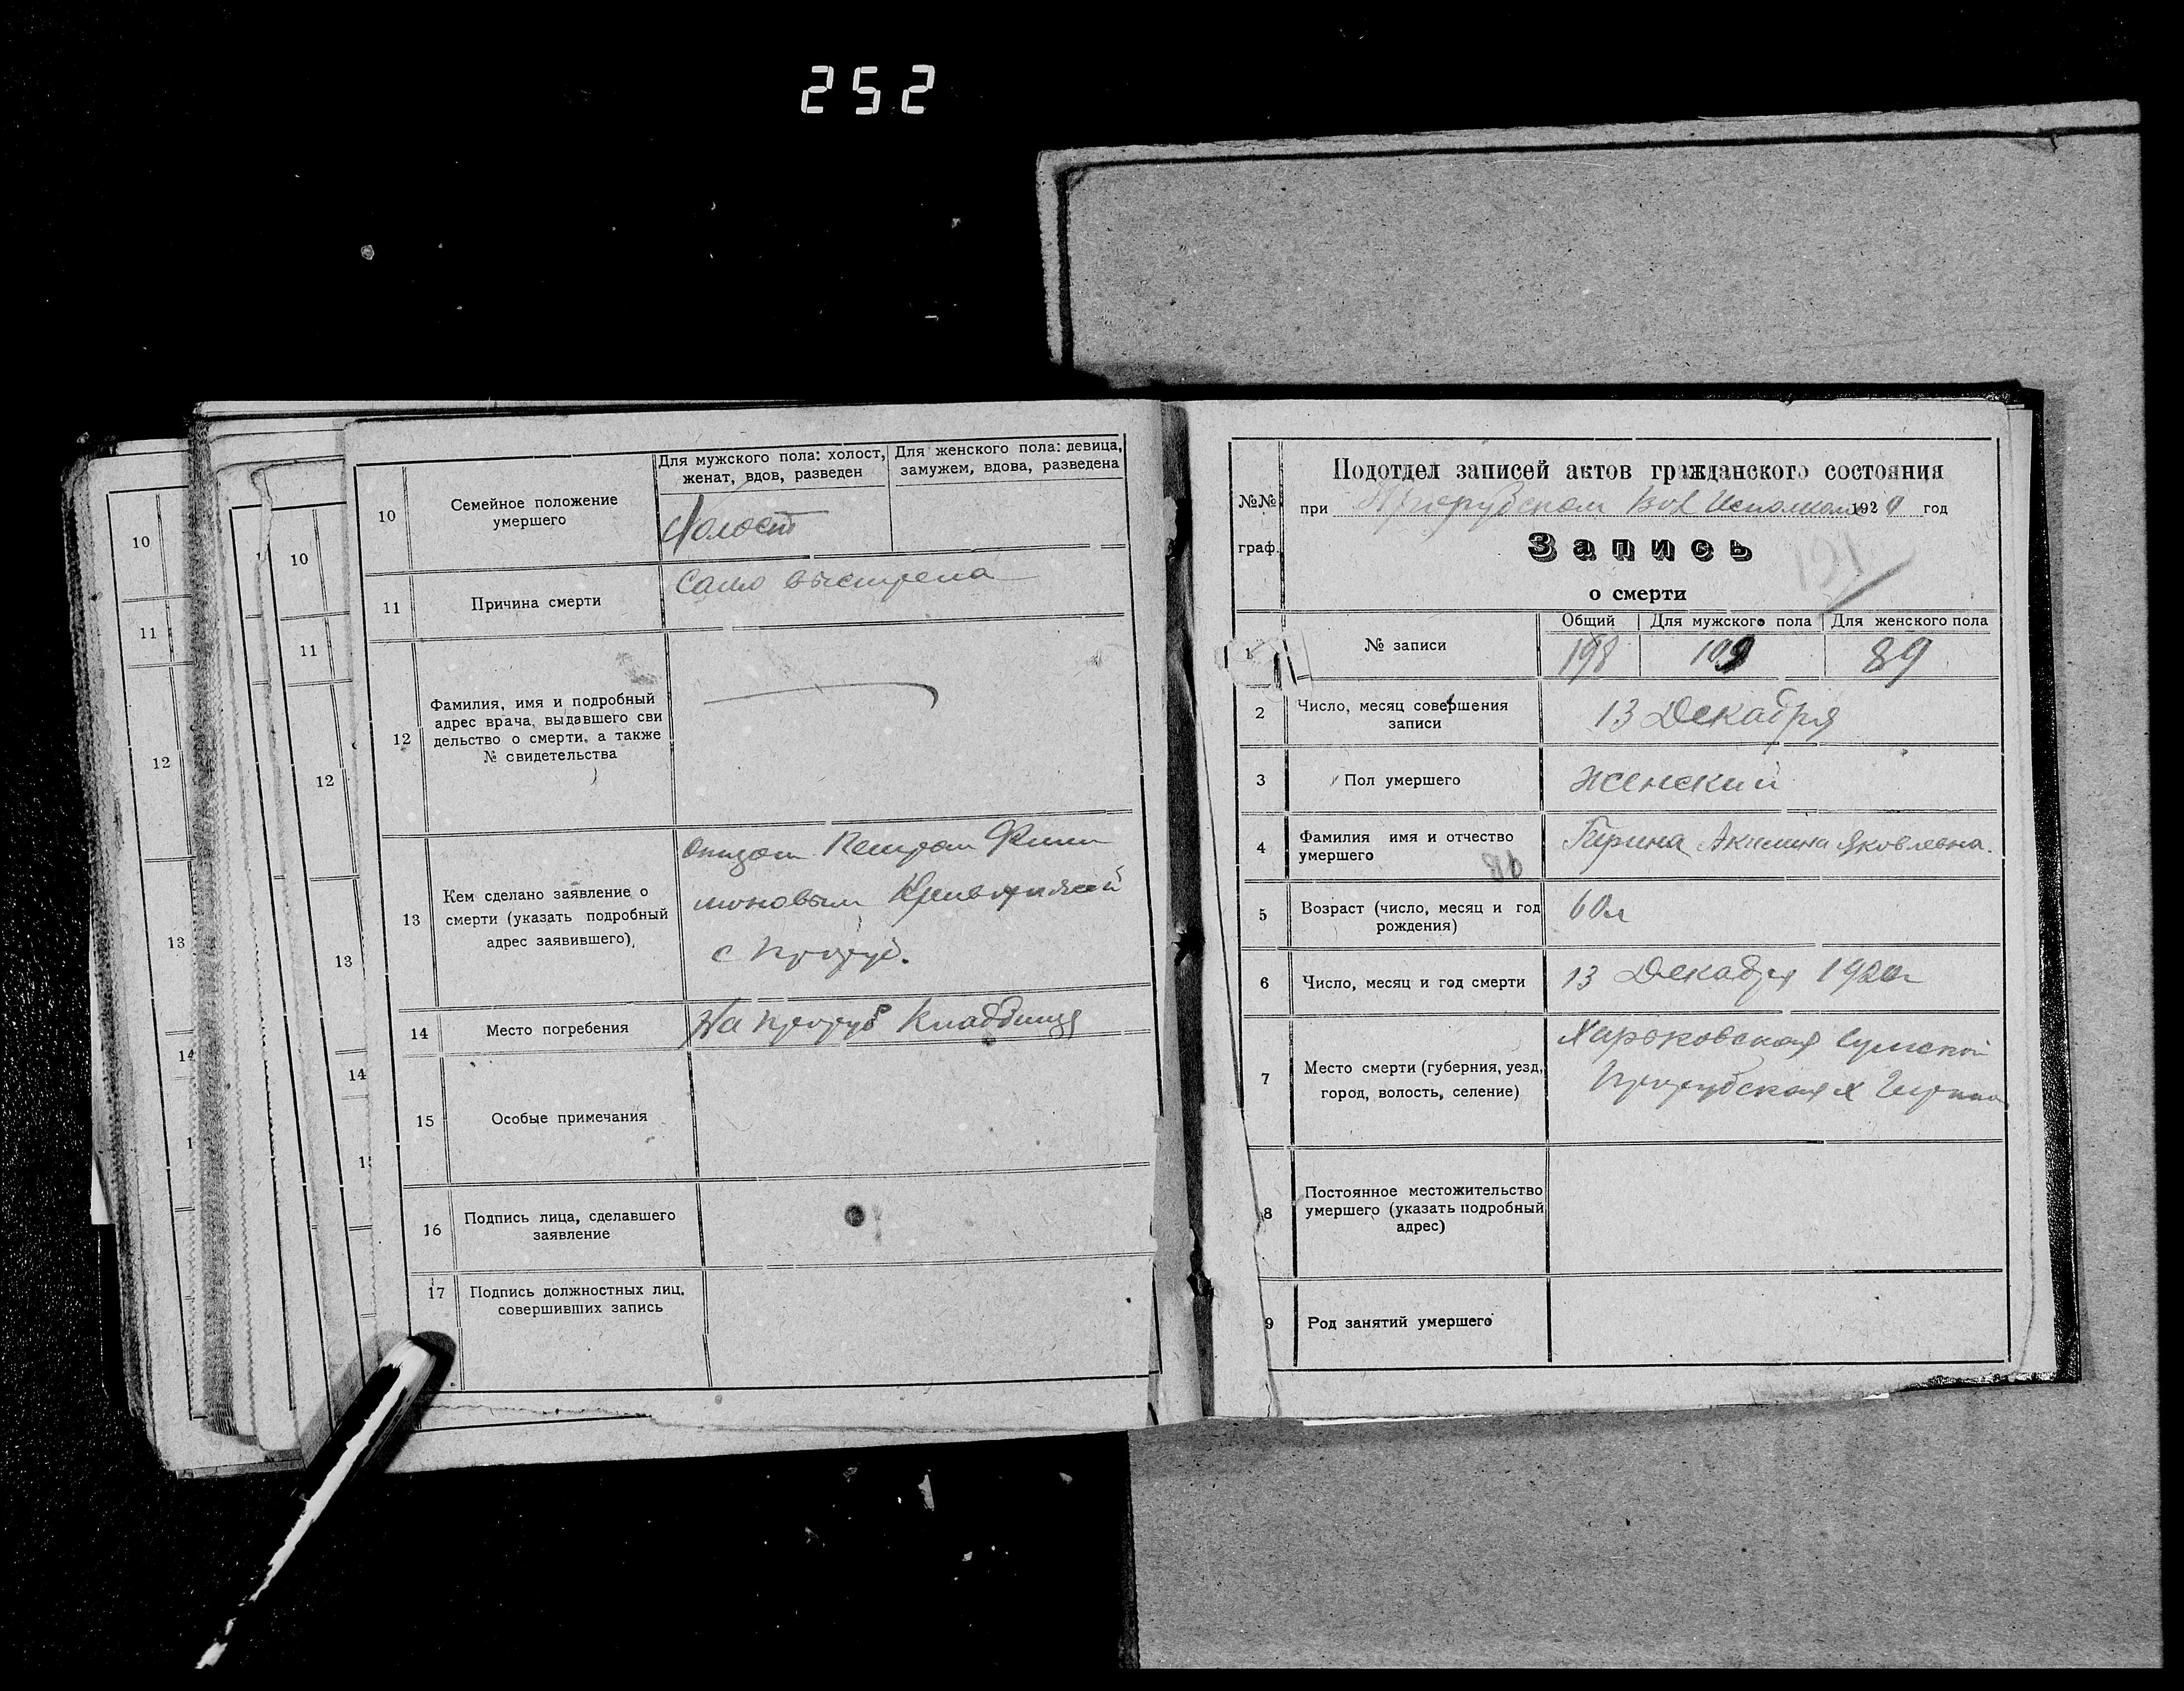 252
10
11
12
13
14
10
11
12
13
14
10
Семейное положение
умершего
Для мужского пола: холост,
женат, вдов, разведен
Для женского пола: девица,
замужем, вдова, разведена
Холост
11
Причина смерти
Само выстрела
12
Фамилия, имя и подробный
адрес врача, выдавшего сви
дельство о смерти, а также
№ свидетельства
13
Кем сделано заявление о
смерти (указать подробный
адрес заявившего)
отцом Петром
с
14
Место погребения
На Кладбище
15
Особые примечания
16
Подпись лица, сделавшего
заявление
17
Подпись должностных лиц,
совершивших запись
№№
граф.
Подотдел записей актов гражданского состояния
при Вол Исполкоме 1920 год
Запись
о смерти
191
1
№ записи
Общий
Для мужского пола
Для женского пола
198
109
89
2
Число, месяц совершения
записи
13 Декабря
3
Пол умершего
женский
4
Фамилия имя и отчество
умершего
Акилина Яковлевна.
5
Возраст (число, месяц и год
рождения)
60л
6
Число, месяц и год смерти
13 Декабря 1920г
7
Место смерти (губерния, уезд,
город, волость, селение)
Харьковская Сумской
8
Постоянное местожительство
умершего (указать подробный
адрес)
9
Род занятий умершего